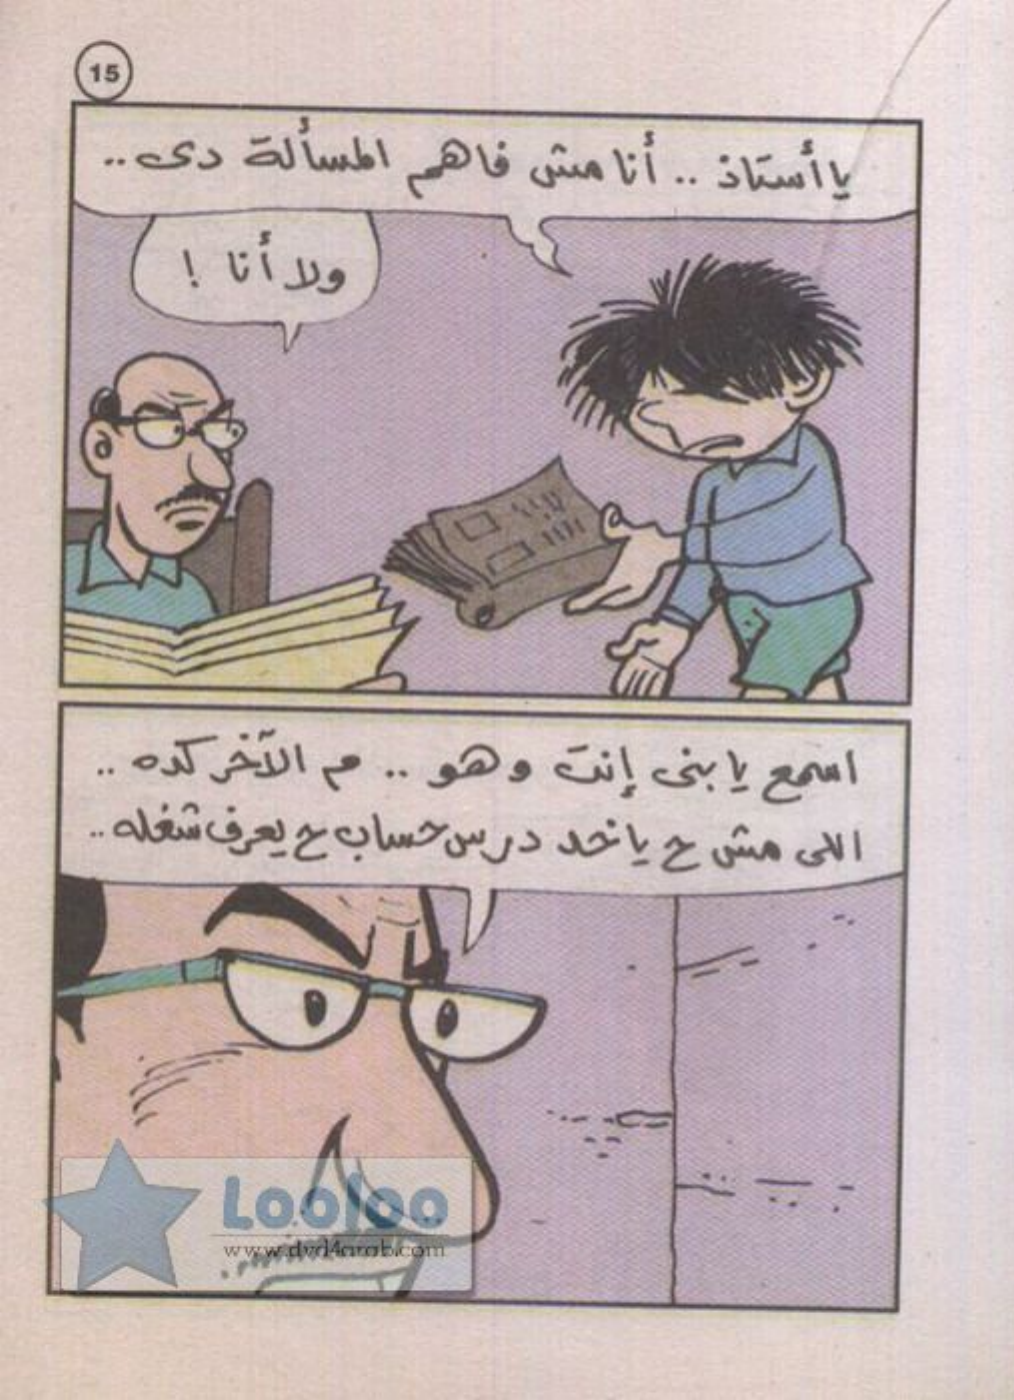 15
يا أستاذ .. أنا مش فاهم المسألة دى ..
ولا أنا !
اسمع يا بنى إنت وهو .. م الآخر كده ..
اللى مش ح ياخد درس حساب ح يعرف شغله ..
Looloo
www.dvd4arab.com